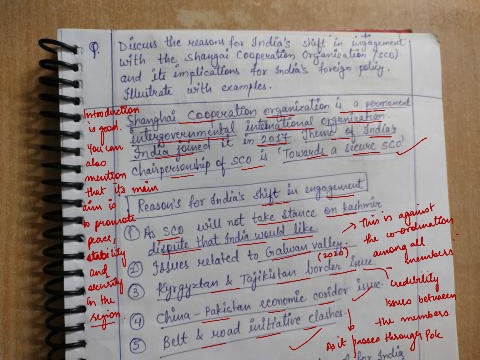 Q. Discuss the reasons for India's shift in engagement
with the Shangai Cooperation Organization (SCO)
and its implications for India's foreign policy.
Illustrate with examples.
Introduction
is good.
You can
also
mention
that its main
aim is
to promote
peace,
stability
and
security
in the
region.
Shanghai Cooperation organization is a permanent
intergovernmental international organization.
India joined it in 2017. Theme of India's
chairpersonship of SCO is 'Towards a secure SCO'
Reason's for India's shift in engagement
① As SCO will not take stance on kashmir
dispute that India would like
② Issues related to Galwan valley.
(2020)
③ Kyrgyztan & Tajikistan border issue.
④ China - Pakistan economic coridor issue.
⑤ Belt & road initiative clashes.
→ This is against
the co-ordination
among all
members
credibility
issues between
the members
As it passes through PoK
for India